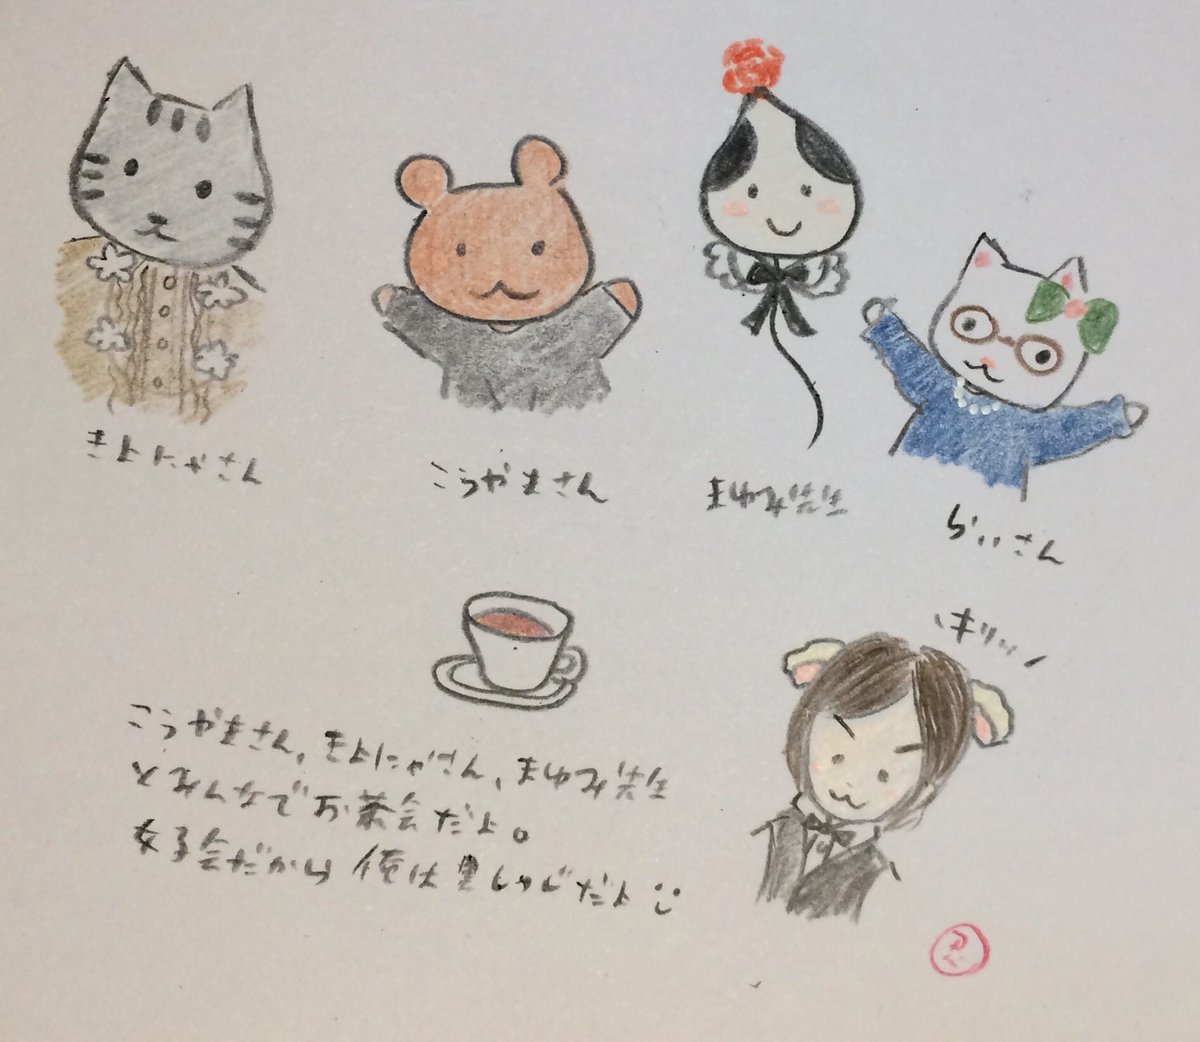 きよにゃさん
こうやまさん
まゆみ先生
らいさん
キリッ
こうやまさん、きよにゃさん、まゆみ先生
とみんなでお茶会だよ。
女子会だから俺は黒しつじだよ